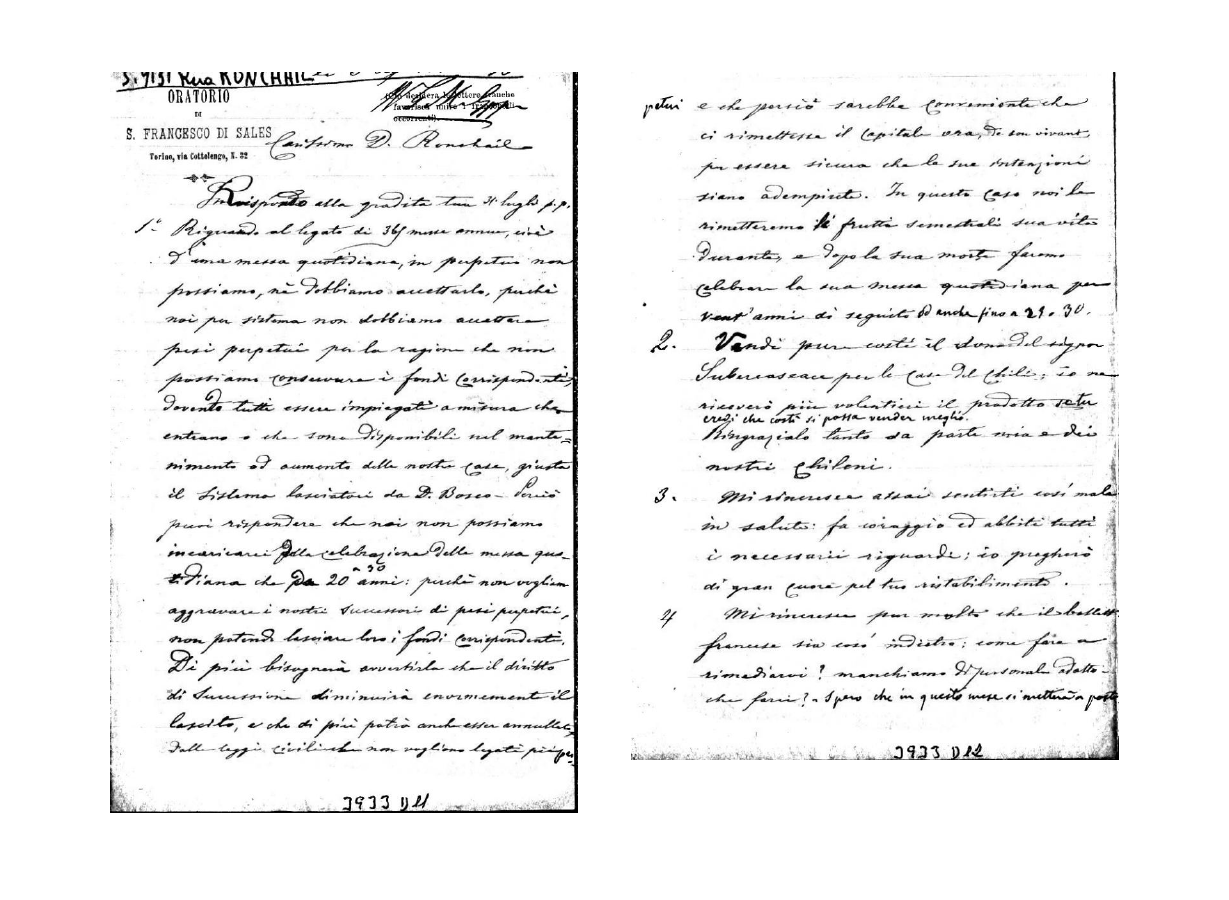 S. 9131 Rua RONCHAIL
ORATORIO
DI
S. FRANCESCO DI SALES
Torino, via Cottolengo, N. 32
(Chi desidera lettere franche
favorisca unire i francobolli
occorrenti).
Carissimo D. Ronchail
Rispondo alla gradita tua 31 luglio p.p.
1° Riguardo al legato di 365 messe annue, cioè
d'una messa quotidiana, in perpetuo non
possiamo, nè dobbiamo accettarlo, perchè
noi per sistema non dobbiamo accettare
pesi perpetui per la ragione che non
possiamo conservare i fondi corrispondenti,
dovendo tutti essere impiegati a misura che
entrano o che sono disponibili nel mante=
nimento ed aumento delle nostre case, giusta
il sistema lasciatoci da D. Bosco - Perciò
puoi rispondere che noi non possiamo
incaricarci della celebrazione della messa quo-
tidiana che pa 20 - 30 anni: perchè non vogliam
aggravare i nostri successori di pesi perpetui,
non potendo lasciare loro i fondi corrispondenti.
Di più bisognerà avvertirla che il diritto
di successione diminuirà enormemente il
lascito, e che di più potrà anche esser annullato
dalle leggi civili che non vogliono legati più per-
3933 D11
petui e che perciò sarebbe conveniente che
ci rimettesse il capitale ora, de son vivant,
per essere sicura che le sue intenzioni
siano adempiute. In questo caso noi le
rimetteremo i frutti semestrali sua vita
durante, e dopo la sua morte faremo
celebrare la sua messa quotidiana per
vent'anni di seguito od anche fino a 25 o 30.
2. Vendi pure costì il dono del signor
Subercaseaux per le case del Chilì; io ne
riceverò più volentieri il prodotto se tu
credi che costì si possa vender meglio.
Ringrazialo tanto da parte mia e dei
nostri Chileni.
3. Mi rincresce assai sentirti così male
in salute: fa coraggio ed abbiti tutti
i necessarii riguardi; io pregherò
di gran cuore pel tuo ristabilimento.
4 Mi rincresce pur molto che il bollett.
francese sia così indietro: come fare a
rimediarvi? manchiamo di personale adatto -
che farci? - Spero che in questo mese si metterà a posto
3933 D12